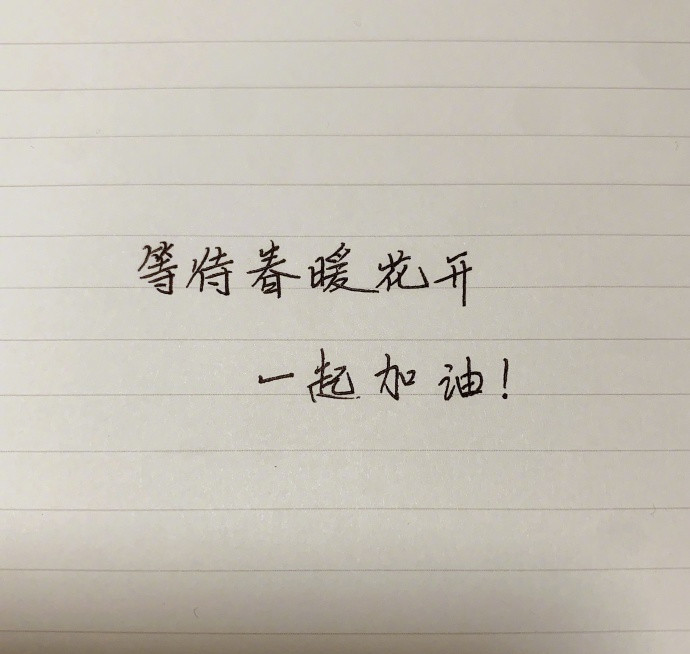 等待春暖花开
一起加油！